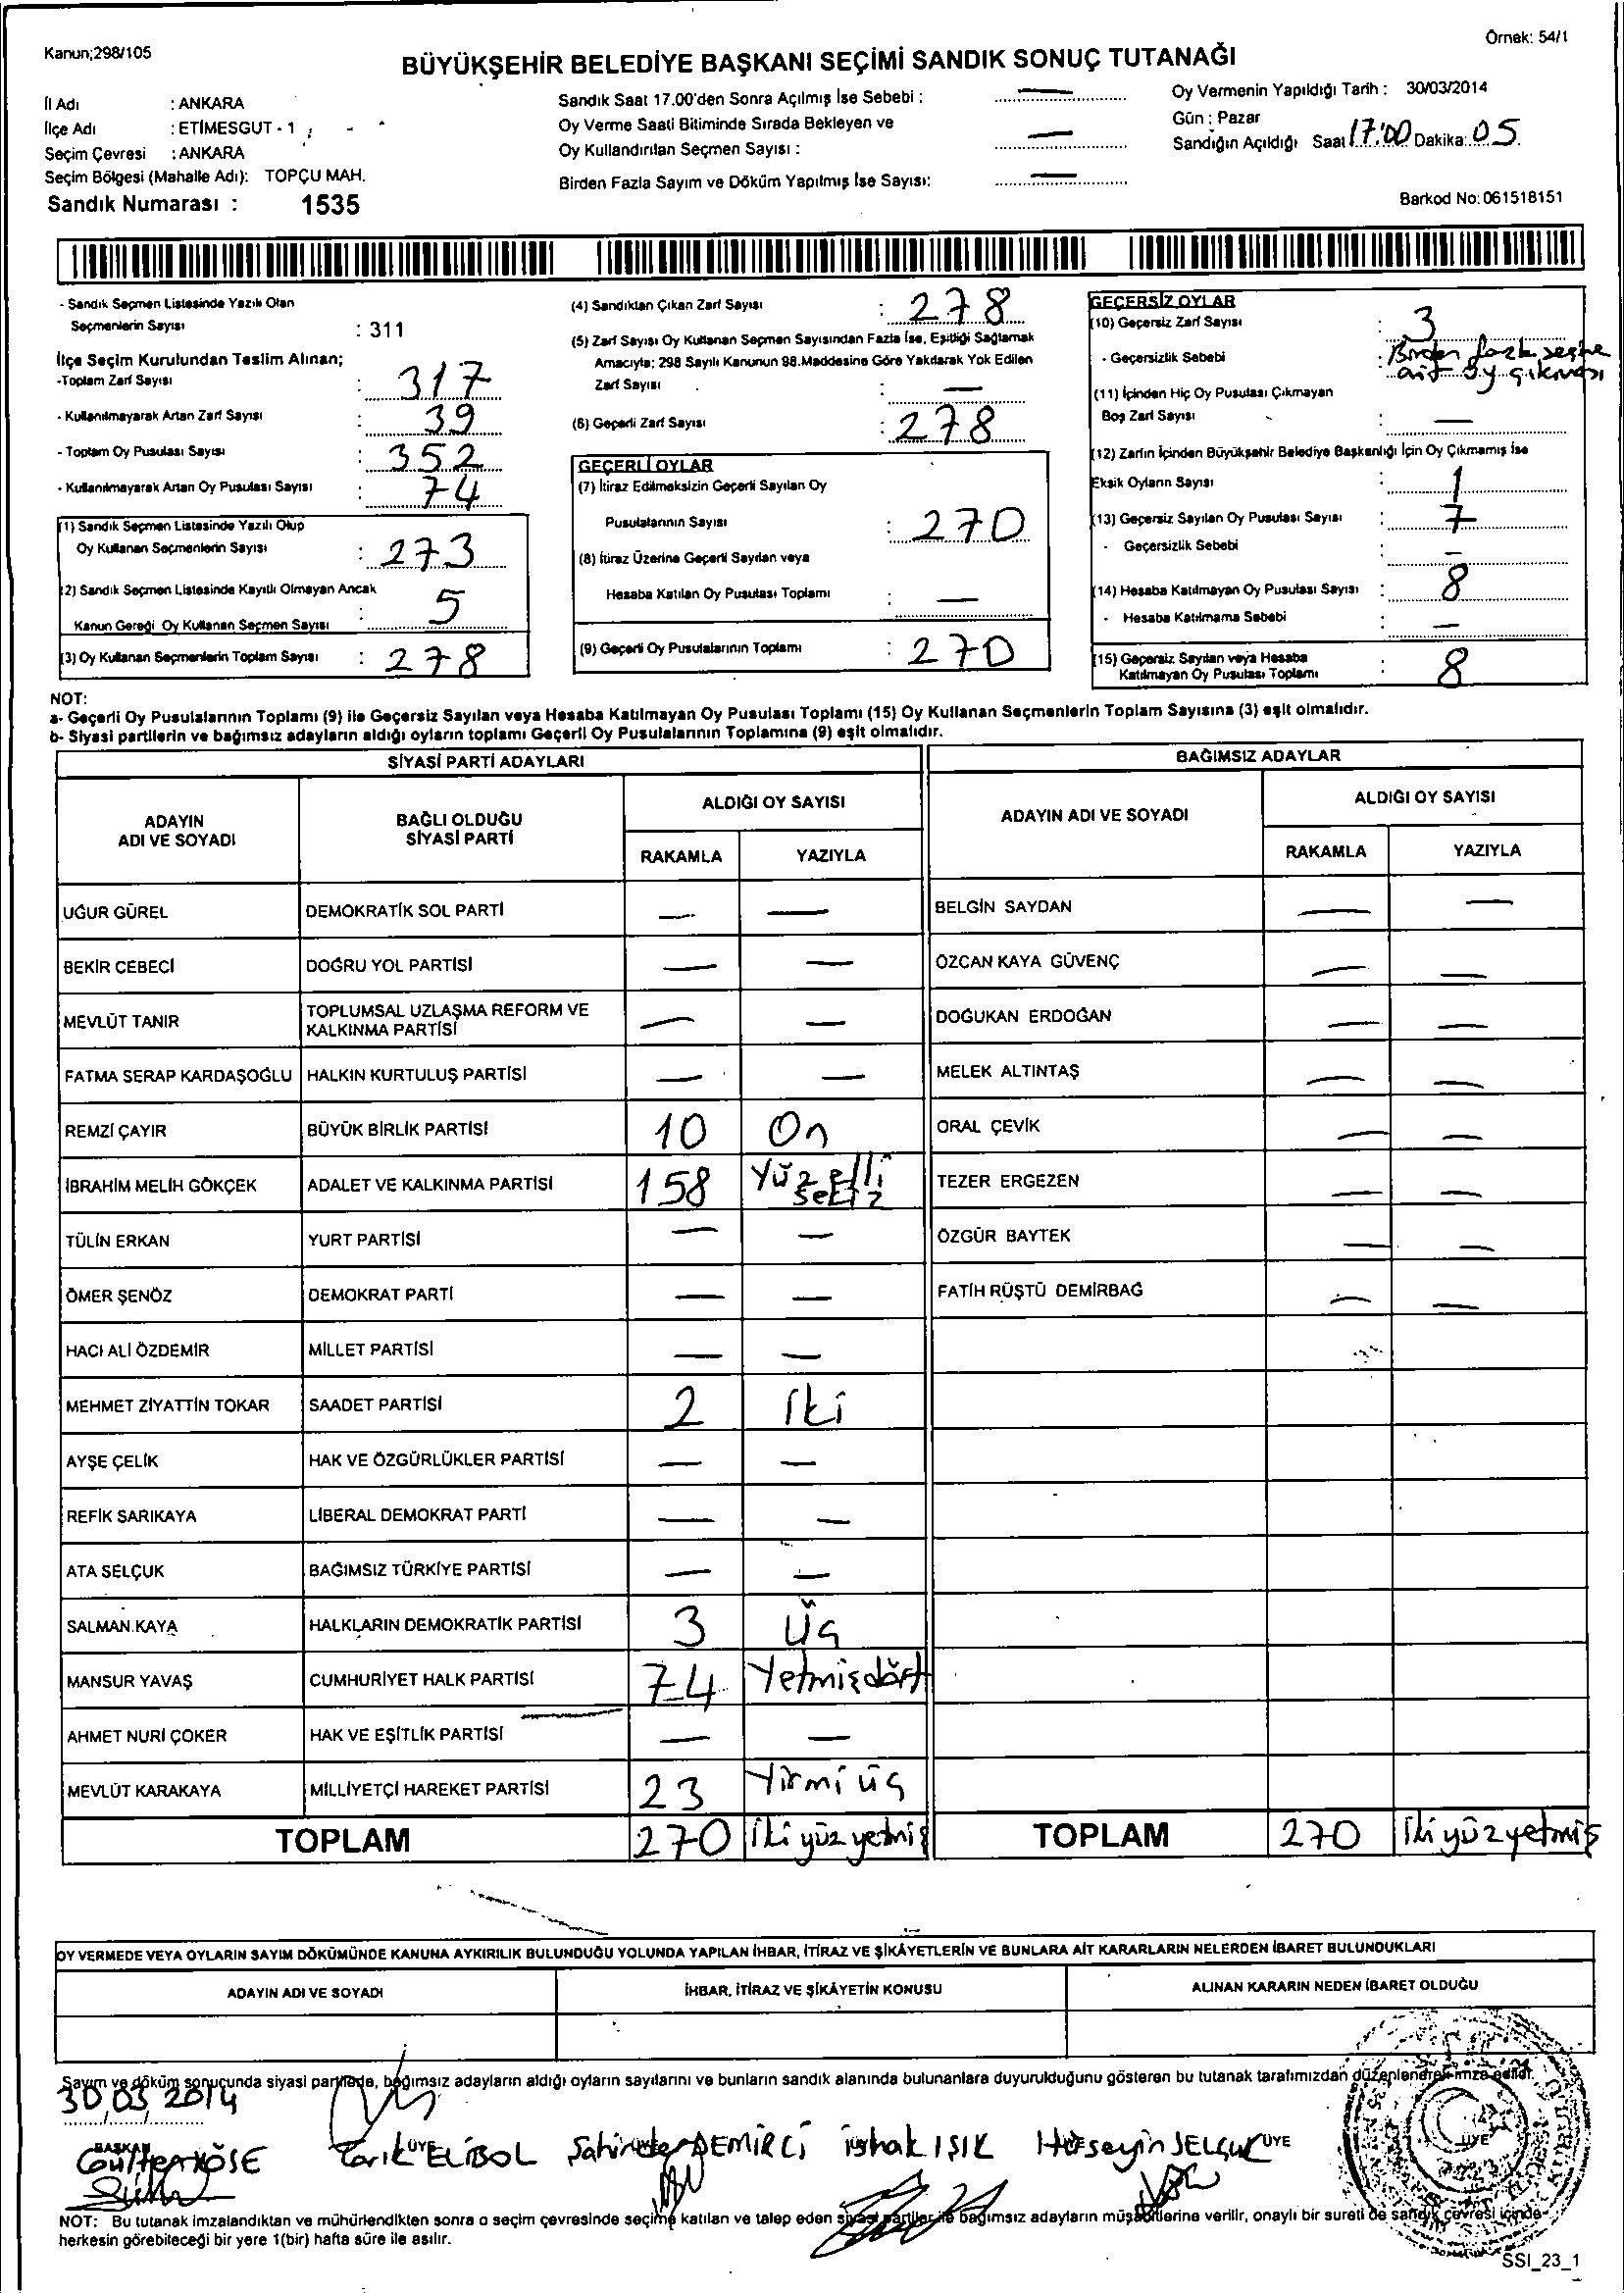 Kanun;298/105
Örnek: 54/1
BÜYÜKŞEHİR BELEDİYE BAŞKANI SEÇİMİ SANDIK SONUÇ TUTANAĞI
İl Adı : ANKARA
İlçe Adı : ETİMESGUT - 1
Seçim Çevresi : ANKARA
Seçim Bölgesi (Mahalle Adı): TOPÇU MAH.
Sandık Numarası : 1535
Sandık Saat 17.00'den Sonra Açılmış İse Sebebi : —
Oy Verme Saati Bitiminde Sırada Bekleyen ve
Oy Kullandırılan Seçmen Sayısı : —
Birden Fazla Sayım ve Döküm Yapılmış İse Sayısı: —
Oy Vermenin Yapıldığı Tarih : 30/03/2014
Gün : Pazar
Sandığın Açıldığı Saat 17:00 Dakika: 05
Barkod No: 061518151
- Sandık Seçmen Listesinde Yazılı Olan
Seçmenlerin Sayısı : 311
İlçe Seçim Kurulundan Teslim Alınan;
-Toplam Zarf Sayısı : 317
- Kullanılmayarak Artan Zarf Sayısı : 39
- Toplam Oy Pusulası Sayısı : 352
- Kullanılmayarak Artan Oy Pusulası Sayısı : 74
(1) Sandık Seçmen Listesinde Yazılı Olup
Oy Kullanan Seçmenlerin Sayısı : 273
(2) Sandık Seçmen Listesinde Kayıtlı Olmayan Ancak
Kanun Gereği Oy Kullanan Seçmen Sayısı : 5
(3) Oy Kullanan Seçmenlerin Toplam Sayısı : 278
(4) Sandıktan Çıkan Zarf Sayısı : 278
(5) Zarf Sayısı Oy Kullanan Seçmen Sayısından Fazla İse, Eşitliği Sağlamak
Amacıyla; 298 Sayılı Kanunun 98.Maddesine Göre Yakılarak Yok Edilen
Zarf Sayısı : —
(6) Geçerli Zarf Sayısı : 278
GEÇERLİ OYLAR
(7) İtiraz Edilmeksizin Geçerli Sayılan Oy
Pusulalarının Sayısı : 270
(8) İtiraz Üzerine Geçerli Sayılan veya
Hesaba Katılan Oy Pusulası Toplamı : —
(9) Geçerli Oy Pusulalarının Toplamı : 270
GEÇERSİZ OYLAR
(10) Geçersiz Zarf Sayısı : 3
- Geçersizlik Sebebi : Birden fazla seçime
ait oy çıkması
(11) İçinden Hiç Oy Pusulası Çıkmayan
Boş Zarf Sayısı : —
(12) Zarfın İçinden Büyükşehir Belediye Başkanlığı İçin Oy Çıkmamış İse
Eksik Oyların Sayısı : 1
(13) Geçersiz Sayılan Oy Pusulası Sayısı : 7
- Geçersizlik Sebebi : —
(14) Hesaba Katılmayan Oy Pusulası Sayısı : 8
- Hesaba Katılmama Sebebi : —
(15) Geçersiz Sayılan veya Hesaba
Katılmayan Oy Pusulası Toplamı : 8
NOT:
a- Geçerli Oy Pusulalarının Toplamı (9) ile Geçersiz Sayılan veya Hesaba Katılmayan Oy Pusulası Toplamı (15) Oy Kullanan Seçmenlerin Toplam Sayısına (3) eşit olmalıdır.
b- Siyasi partilerin ve bağımsız adayların aldığı oyların toplamı Geçerli Oy Pusulalarının Toplamına (9) eşit olmalıdır.
SİYASİ PARTİ ADAYLARI
ADAYIN
ADI VE SOYADI
BAĞLI OLDUĞU
SİYASİ PARTİ
ALDIĞI OY SAYISI
RAKAMLA YAZIYLA
UĞUR GÜREL DEMOKRATİK SOL PARTİ — —
BEKİR CEBECİ DOĞRU YOL PARTİSİ — —
MEVLÜT TANIR TOPLUMSAL UZLAŞMA REFORM VE
KALKINMA PARTİSİ — —
FATMA SERAP KARDAŞOĞLU HALKIN KURTULUŞ PARTİSİ — —
REMZİ ÇAYIR BÜYÜK BİRLİK PARTİSİ 10 On
İBRAHİM MELİH GÖKÇEK ADALET VE KALKINMA PARTİSİ 158 Yüz elli
sekiz
TÜLİN ERKAN YURT PARTİSİ — —
ÖMER ŞENÖZ DEMOKRAT PARTİ — —
HACI ALİ ÖZDEMİR MİLLET PARTİSİ — —
MEHMET ZİYATTİN TOKAR SAADET PARTİSİ 2 İki
AYŞE ÇELİK HAK VE ÖZGÜRLÜKLER PARTİSİ — —
REFİK SARIKAYA LİBERAL DEMOKRAT PARTİ — —
ATA SELÇUK BAĞIMSIZ TÜRKİYE PARTİSİ — —
SALMAN KAYA HALKLARIN DEMOKRATİK PARTİSİ 3 Üç
MANSUR YAVAŞ CUMHURİYET HALK PARTİSİ 74 Yetmişdört
AHMET NURİ ÇOKER HAK VE EŞİTLİK PARTİSİ — —
MEVLÜT KARAKAYA MİLLİYETÇİ HAREKET PARTİSİ 23 Yirmi üç
TOPLAM 270 İki yüz yetmiş
BAĞIMSIZ ADAYLAR
ADAYIN ADI VE SOYADI
ALDIĞI OY SAYISI
RAKAMLA YAZIYLA
BELGİN SAYDAN — —
ÖZCAN KAYA GÜVENÇ — —
DOĞUKAN ERDOĞAN — —
MELEK ALTINTAŞ — —
ORAL ÇEVİK — —
TEZER ERGEZEN — —
ÖZGÜR BAYTEK — —
FATİH RÜŞTÜ DEMİRBAĞ — —
TOPLAM 270 İki yüz yetmiş
OY VERMEDE VEYA OYLARIN SAYIM DÖKÜMÜNDE KANUNA AYKIRILIK BULUNDUĞU YOLUNDA YAPILAN İHBAR, İTİRAZ VE ŞİKÂYETLERİN VE BUNLARA AİT KARARLARIN NELERDEN İBARET BULUNDUKLARI
ADAYIN ADI VE SOYADI İHBAR, İTİRAZ VE ŞİKÂYETİN KONUSU ALINAN KARARIN NEDEN İBARET OLDUĞU
Sayım ve döküm sonucunda siyasi partilerle, bağımsız adayların aldığı oyların sayılarını ve bunların sandık alanında bulunanlara duyurulduğunu gösteren bu tutanak tarafımızdan düzenlenerek imza edildi.
30/03/2014
BAŞKAN ÜYE ÜYE ÜYE
KÖSE Tarık ELİBOL DEMİRCİ ishak IŞIK Hüseyin SELÇUK
NOT: Bu tutanak imzalandıktan ve mühürlendikten sonra o seçim çevresinde seçime katılan ve talep eden siyasi partiler ile bağımsız adayların müşahitlerine verilir, onaylı bir sureti de sandık çevresi içinde
herkesin görebileceği bir yere 1(bir) hafta süre ile asılır.
SSI_23_1